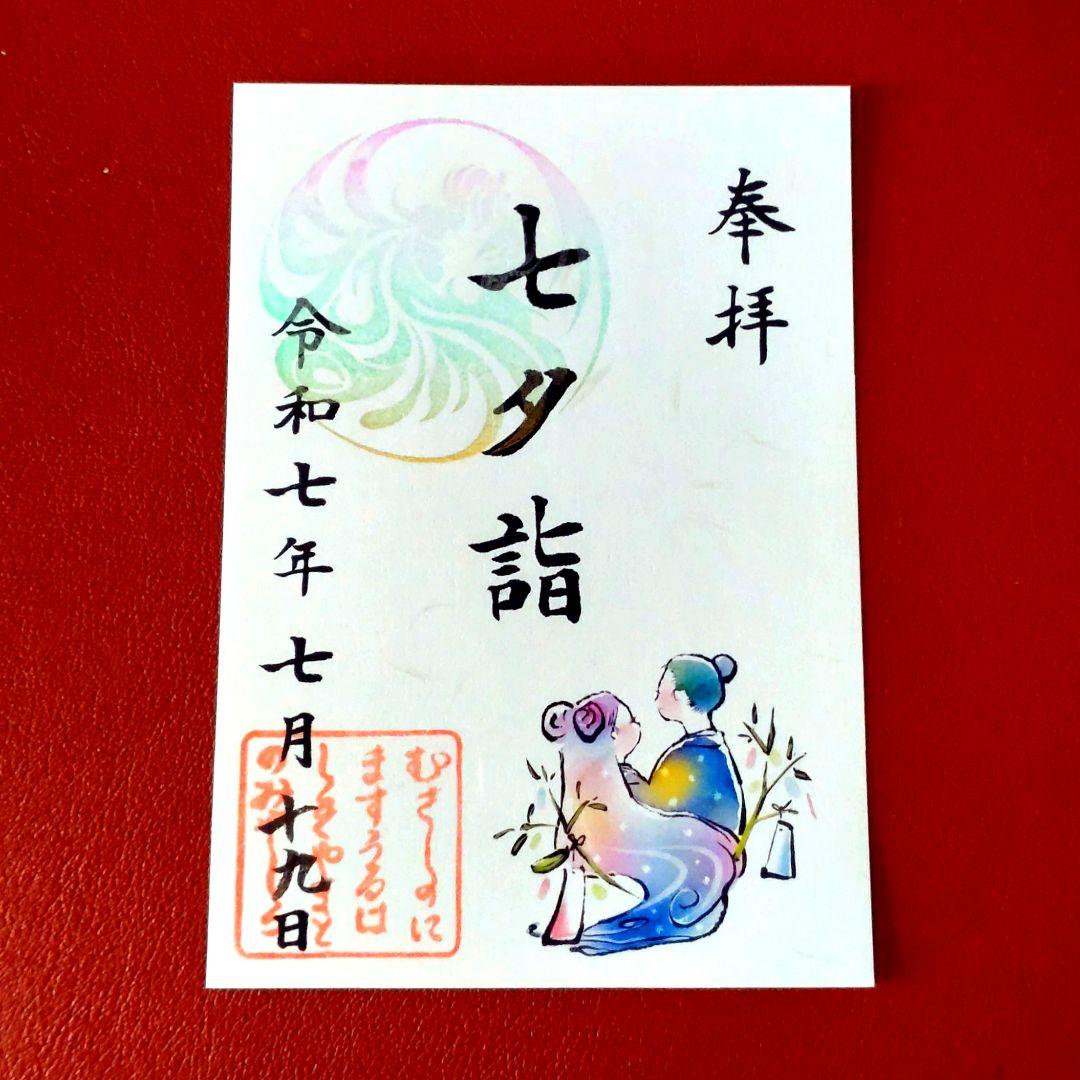 奉拝
七夕詣
令和七年七月十九日
むさしのに
ますうるは